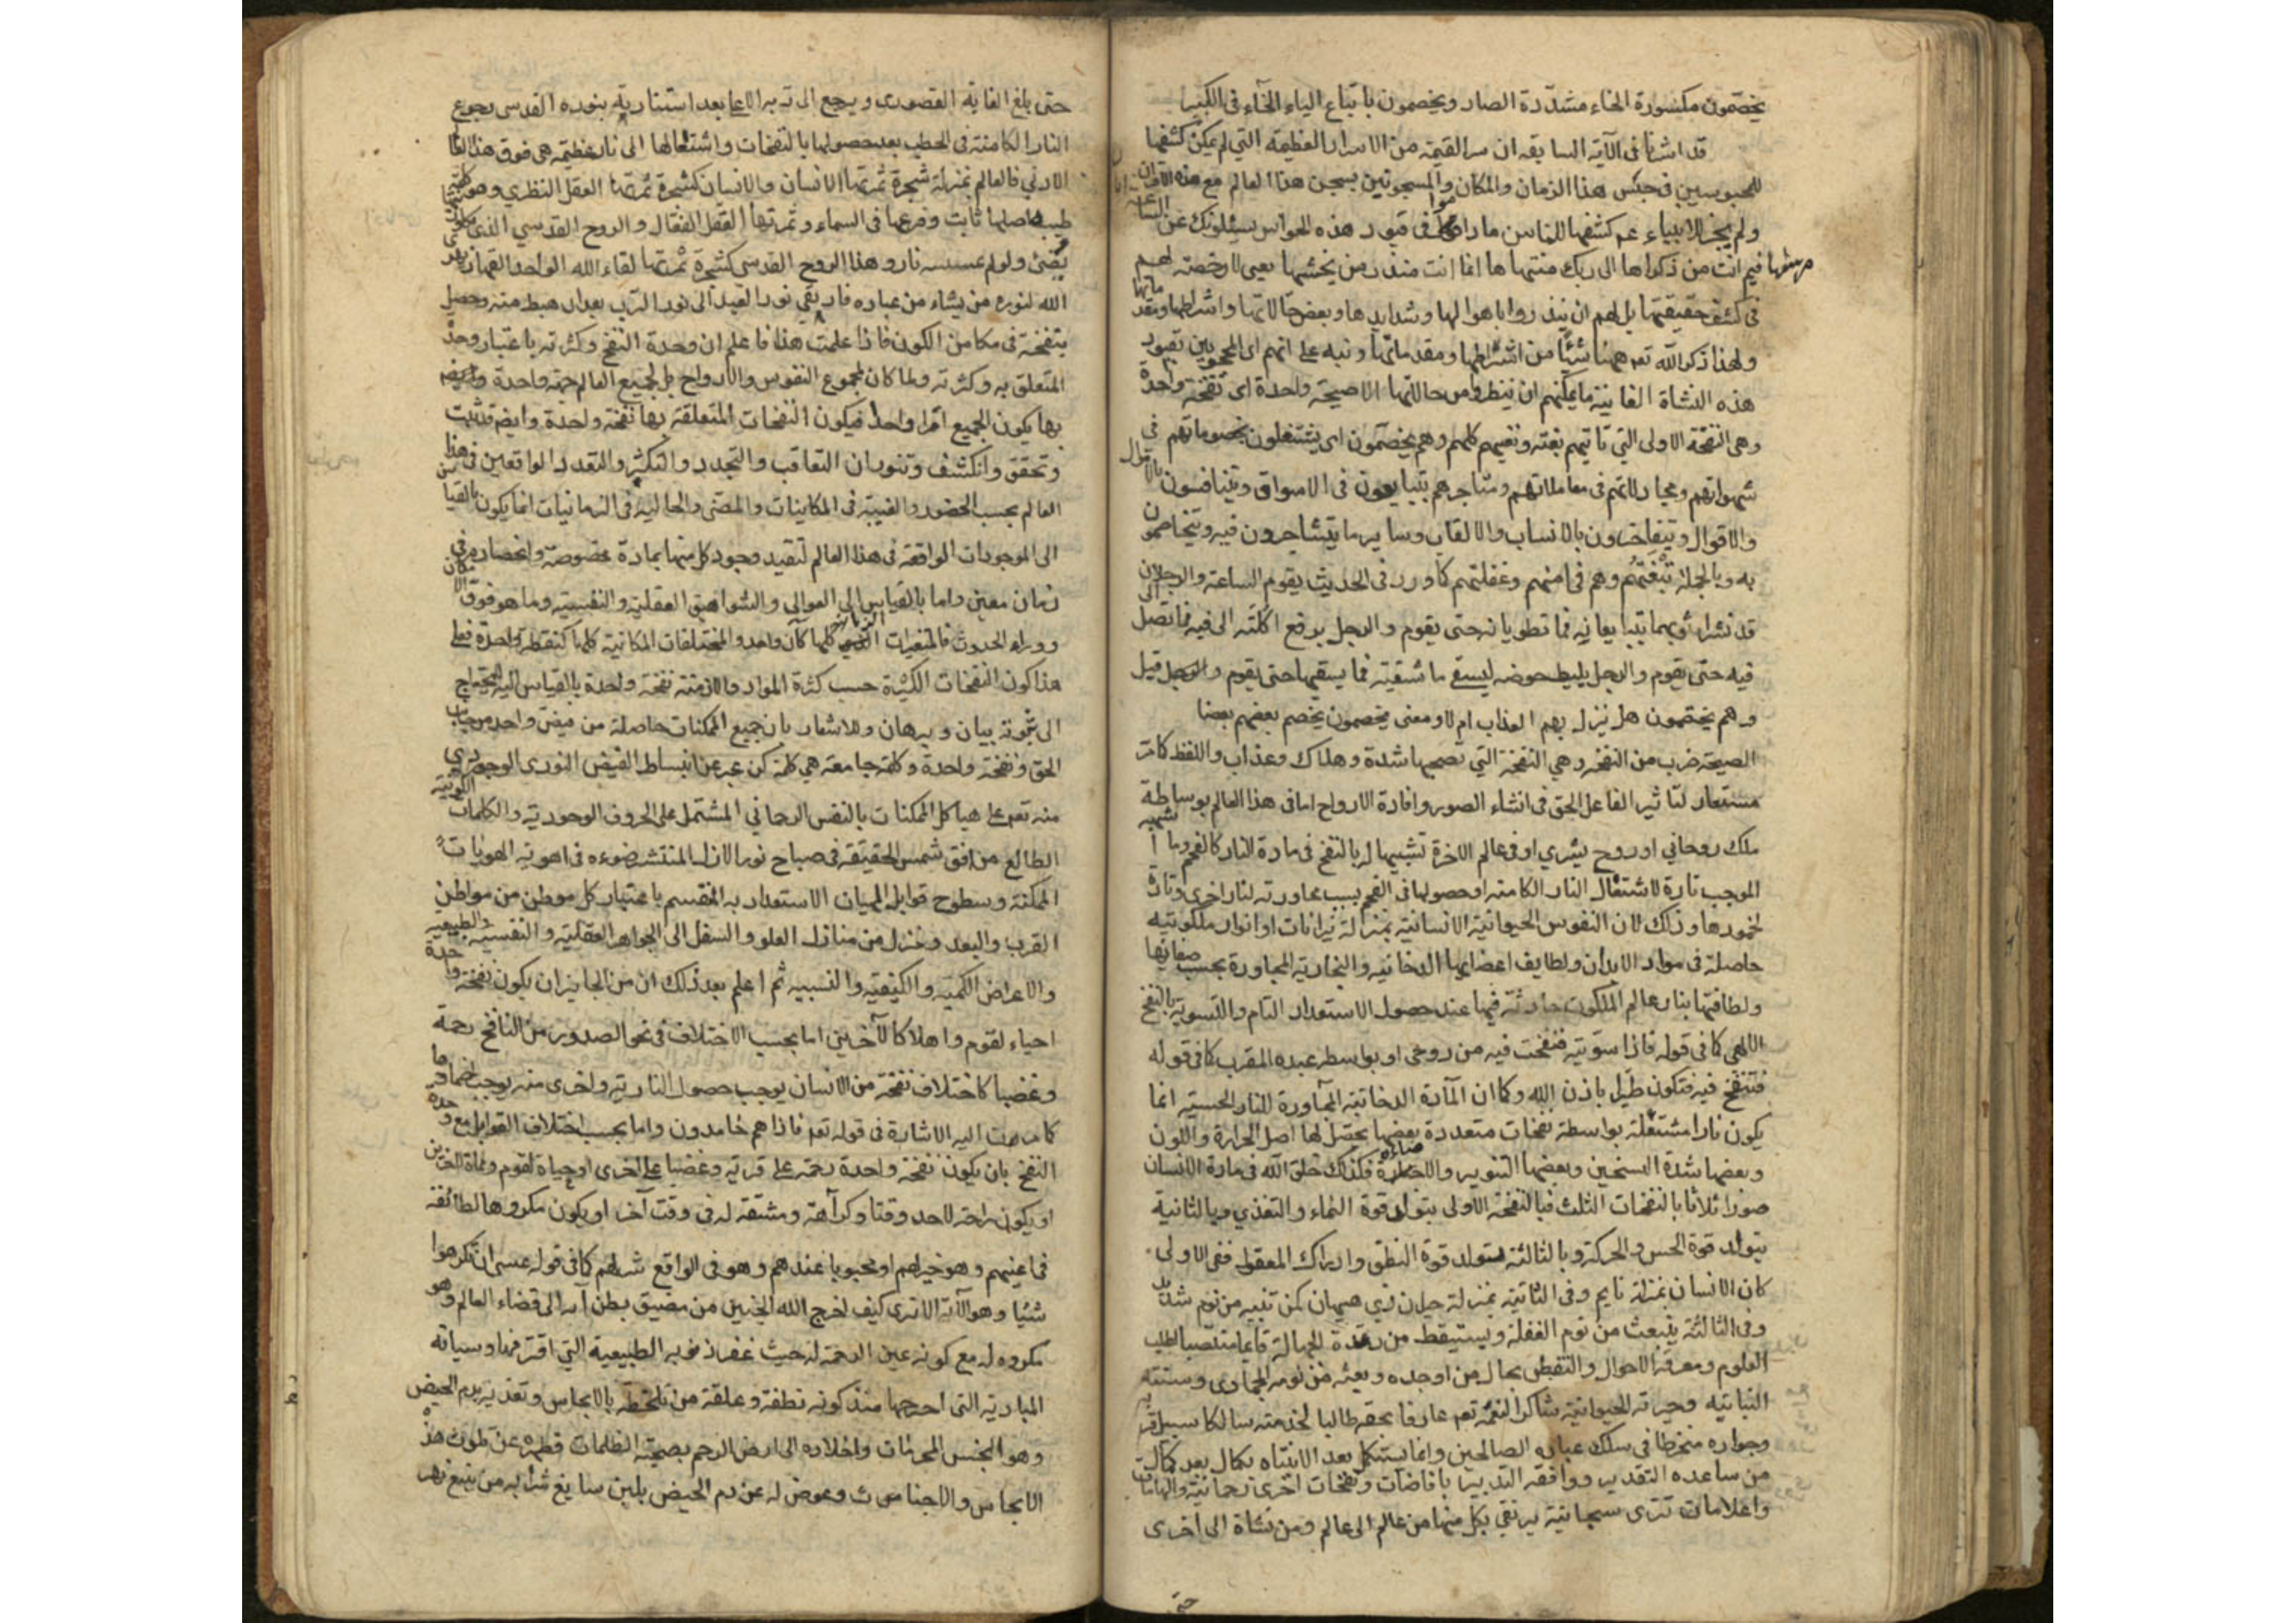 يخصّمون مكسورة الخاء مشدّدة الصاد ويخصمون باتباع الياء الخاء في الكسر
قد اشرنا في الآية السابقه ان سر القيمة من الاسرار العظيمه التي لم يمكن كشفها
للمحبوسين في حبس هذا الزمان والمكان والمسجونين بسجن هذا العالم مع هذه
ولم يجز للانبياء عم كشفها للناس ما داموا في قيود هذه الحواس يسئلونك عن الساعة
مرسٰها فيم انت من ذكراها الى ربك منتهاها انما انت منذر من يخشها يعني لا رخصة لهم
في كشف حقيقتها بل لهم ان ينذروا باهوالها وشدايدها وبعض حالاتها واشراطها ومقدماتها
ولهذا ذكر الله تع ههنا شيئا من اشراطها ومقدماتها ونبه على انهم اى المحجوبين بقيود
هذه النشاة الفانية ما يمكنهم ان ينظروا من حالاتها الا صيحة واحدة اى نفخة واحدة
وهى النفخة الاولى التي تاتيهم بغتة وتعميهم كلهم وهم يخصّمون اى يشتغلون بخصوماتهم في
شهواتهم ومجادلاتهم في معاملاتهم ومتاجرهم يتبايعون في الاسواق ويتنافسون بالاموال
والاقوال ويتفاخرون بالانساب والالقاب وساير ما يتشاجرون فيه ويتخاصمون
به وبالجملة تبغتهم وهم في امنهم وغفلتهم كما ورد في الحديث يقوم الساعة والرجلان
قد نشرا ثوبهما يتبايعانه فما تطويانه حتى يقوم والرجل يرفع اكلته الى فيه فما تصل
فيه حتى يقوم والرجل يليط حوضه ليسقى ماشيته فما يسقيها حتى يقوم وقيل
وهم يختصمون هل ينزل بهم العذاب ام لا ومعنى يخصمون يخصم بعضهم بعضا
الصيحة ضرب من النفخ وهي النفخة التي تصحبها شدة وهلاك وعذاب واللفظ كانه
مستعار لتاثير الفاعل الحق في انشاء الصور وافادة الارواح اما في هذا العالم بوساطة
ملك روحاني او روح بشري او في عالم الاخرة تشبيها له بالنفخ في مادة النار كالفحم وما
الموجب تارة لاشتعال النار الكامنه او حصولها في الفحم بسبب مجاورته لنار اخرى وتارة
لخمودها وذلك لان النفوس الحيوانية الانسانية بمنزلة نيرانات او انوار ملكوتيه
حاصلة في مواد الابدان ولطايف اعضائها الدخانيه والبخارية المجاورة بحسب صفائها
ولطافتها بنار عالم الملكوت حادثة فيها عند حصول الاستعداد التام والتسوية بالنفخ
الالهى كما في قوله فاذا سوّيته فنفخت فيه من روحى او بواسطه عبده المقرب كما في قوله
فتنفخ فيه فتكون طيرا باذن الله وكما ان المادة الدخانية المجاورة للنار الحسية انما
يكون نارا مشتعلة بواسطة نفخات متعددة بعضها يحصل لها اصل الحرارة واللون
وبعضها شدة التسخين وبعضها التنوير والاضاءة فكذلك خلق الله في مادة الانسان
صورا ثلاثا بالنفخات الثلث فبالنفخة الاولى يتولد قوة النماء والتغذي وبالثانية
يتولد قوة الحس والحركة وبالثالثة يتولد قوة النطق وادراك المعقول ففي الاولى
كان الانسان بمنزلة نايم وفي الثانية بمنزلة حيران ذي هيمان كمن تنبه من نوم شديد
وفي الثالثة ينبعث من نوم الغفلة ويستيقظ من رقدة الجهالة قايما منتصبا لطلب
العلوم ومعرفة الاحوال والتفطن بحال من اوجده وبعثه من نومه الجمادى وسنته
النباتيه وحيرته الحيوانية شاكرا لنعمه تع عارفا بحقه طالبا لخدمته سالكا سبيل قربه
وجواره منخرطا في سلك عباده الصالحين وانما يستكمل بعد الانتباه بكمال بعد كمال
من ساعده التقدير ووافقه التدبير بافاضات ونفخات اخرى رحمانية والهامات
واعلامات تترى سبحانية يرتقي بكل منها من عالم الى عالم ومن نشاة الى اخرى
حتى
حتى بلغ الغاية القصوى ويرجع الى ربه الاعلى بعد استنارته بنوره القدسي رجوع
النار الكامنة في الحطب بعد حصولها بالنفخات واشتعالها الى نار عظيمة هي فوق هذا العالم
الادنى فالعالم بمنزلة شجرة ثمرتها الانسان والانسان كشجرة ثمرتها العقل النظري وهو كشجرة
طيبة اصلها ثابت وفرعها في السماء وثمرتها العقل الفعال والروح القدسي الذي يكاد
يضئ ولو لم تمسسه نار وهذا الروح القدسي كشجرة ثمرتها لقاء الله الواحد القهار
الله لنوره من يشاء من عباده فارتقى نور العبد الى نور الرب بعد ان هبط منه وحصل
بنفخة في مكامن الكون فاذا علمت هذا فاعلم ان وحدة النفخ وكثرته باعتبار وحدة
المتعلق به وكثرته ولما كان لمجموع النفوس والارواح بل لجميع العالم جهة واحدة
بها يكون الجميع امرا واحدا فيكون النفخات المتعلقة بها نفخة واحدة وايضم قد ثبت
وتحقق وانكشف وتنور ان التعاقب والتجدد والتكثر والتعدد الواقعين في هذا
العالم بحسب الحضور والغيبة في المكانيات والمضى والحالية في الزمانيات انما يكون بالقياس
الى الموجودات الواقعة في هذا العالم لتقيد وجود كل منها بمادة مخصوصة وانحصاره في مكان
زمان معين واما بالقياس الى العوالى والشواهق العقلية والنفسية وما هو فوق
ووراء الحدوث فالمتغيرات الزمانية كلها كآن واحد والمختلفات المكانية كلها كنقطة واحدة فعلى
هذا كون النفخات الكثيرة حسب كثرة المواد والازمنة نفخة واحدة بالقياس اليه يحتاج
الى ثبوته بيان وبرهان وللاشعار بان جميع الممكنات حاصلة من فيض واحد من جناب
الحق ونفخة واحدة وكلمة جامعة هي كلمة كن عبر عن انبساط الفيض النورى الوجودى
منه تع على هياكل الممكنات بالنفس الرحماني المشتمل على الحروف الوجودية والكلمات الكونية
الطالع من افق شمس الحقيقه في صباح نور الازل المنتشر ضوءه في اهوية الهويات
الممكنة وسطوح قوابل الاستعداد به المنقسم باعتبار كل موطن من مواطن
القرب والبعد ومنزل من منازل العلو والسفل الى الجواهر العقلية والنفسية والطبيعيه
والاعراض الكمية والكيفية والنسبيه ثم اعلم بعد ذلك ان من الجايز ان يكون نفخة واحدة
احياء لقوم واهلاكا لآخرين اما بحسب الاختلاف في نحو الصدور من النافخ رحمة
وغضبا كاختلاف نفخة من الانسان يوجب حصول النارية واخرى منه يوجب اخمادها
كما مرت اليه الاشارة في قوله تع فاذا هم خامدون واما بحسب اختلاف القوابل مع وحدة
النفخ بان يكون نفخة واحدة رحمة على قرية وغضبا على اخرى او حياة لقوم ومماة لاخرين
او يكون راحة لاحد وقتا وكراهة ومشقة له في وقت آخر او يكون مكروها لطائفة
في اعينهم وهو خير لهم او محبوبا عندهم وهو في الواقع شر لهم كما في قوله عسى ان تكرهوا
شيئا وهو الآية الا ترى كيف اخرج الله الجنين من مضيق بطن امه الى فضاء العالم وهو
مكروه له مع كونه عين الرحمة له حيث غفر ذنوبه الطبيعية التي اقترفها وسيئاته
المادية التى اجترحها منذ كونه نطفة وعلقة من تلطخه بالانجاس وتغذيه بدم الحيض
وهو النجس المحرمات واخلاده الى ارض الرحم بصحبة الظلمات فطهره عن تلوث هذه
الانجاس والاجناس وعوض له عن دم الحيض بلبن سايغ شرابه من ينبع نهر